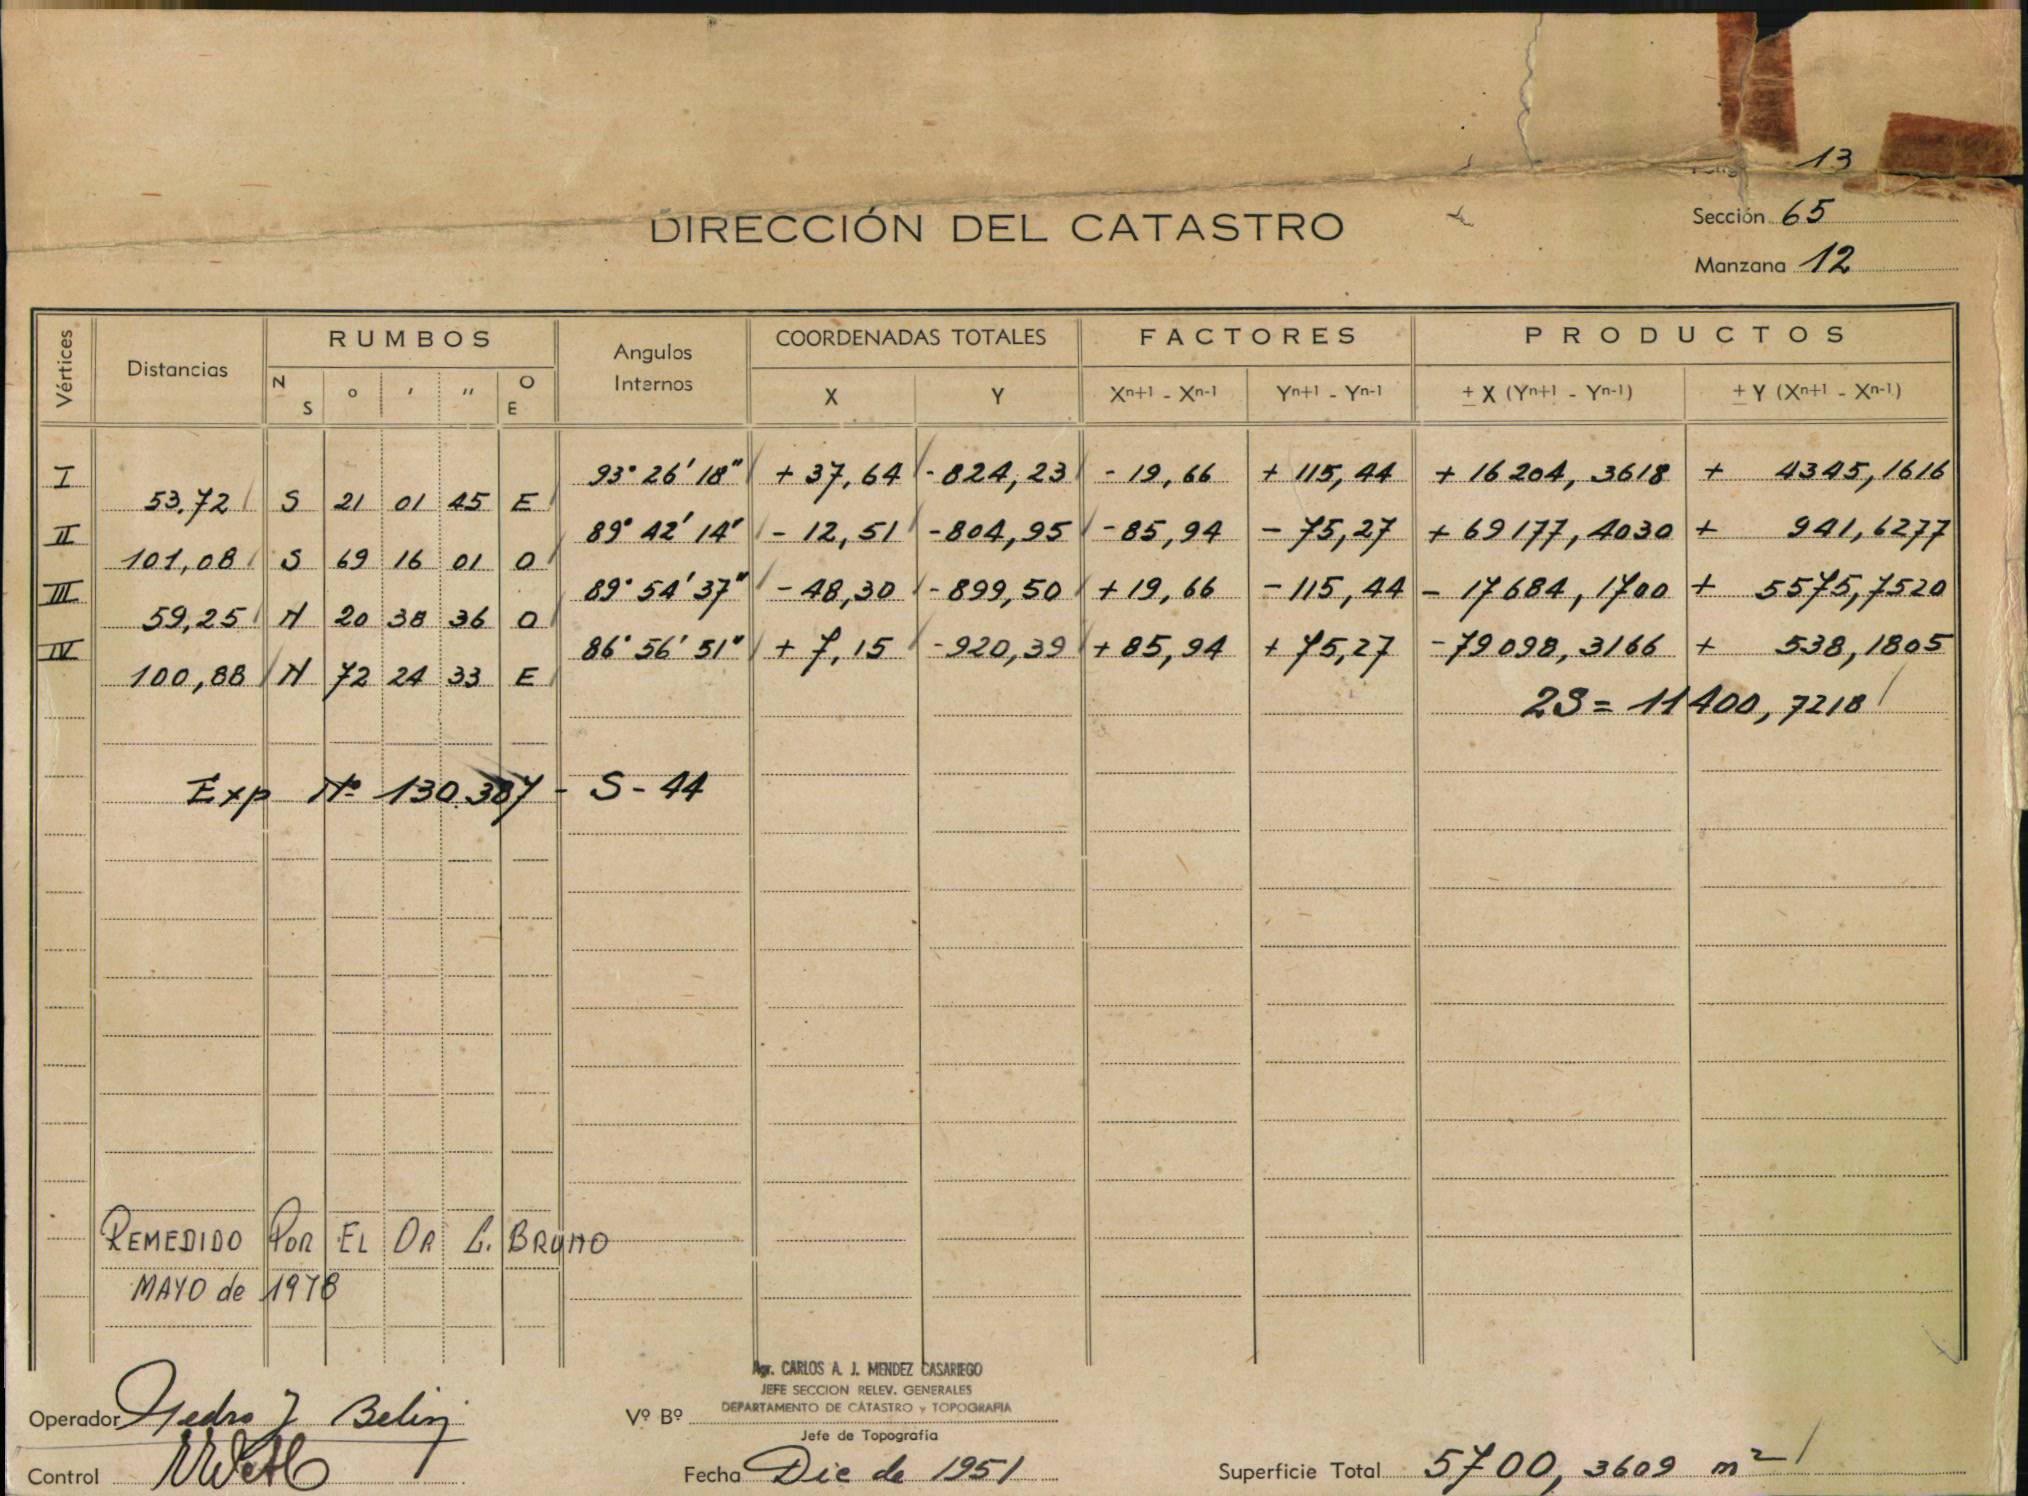 13
DIRECCIÓN DEL CATASTRO
Sección 65
Manzana 12
Vértices Distancias RUMBOS Angulos Internos COORDENADAS TOTALES FACTORES PRODUCTOS
N S ° ' " O E X Y Xn+1 - Xn-1 Yn+1 - Yn-1 ± X (Yn+1 - Yn-1) ± Y (Xn+1 - Xn-1)
I 93° 26' 18" + 37,64 - 824,23 - 19,66 + 115,44 + 16204,3618 + 4345,1616
53,72 S 21 01 45 E
II 89° 42' 14' - 12,51 - 804,95 - 85,94 - 75,27 + 69177,4030 + 941,6277
101,08 S 69 16 01 O
III 89° 54' 37" - 48,30 - 899,50 + 19,66 - 115,44 - 17684,1700 + 5575,7520
59,25 N 20 38 36 O
IV 86° 56' 51" + 7,15 - 920,39 + 85,94 + 75,27 - 79098,3166 + 538,1805
100,88 N 72 24 33 E
2S = 11400,7218
Exp Nº 130.387 - S - 44
REMEDIDO POR EL DR C. BRUNO
MAYO de 1978
Agr. CARLOS A. J. MENDEZ CASARIEGO
JEFE SECCION RELEV. GENERALES
DEPARTAMENTO DE CATASTRO y TOPOGRAFIA
Operador Pedro J Belin
Vº Bº
Jefe de Topografía
Control
Fecha Dic de 1951
Superficie Total 5700,3609 m²